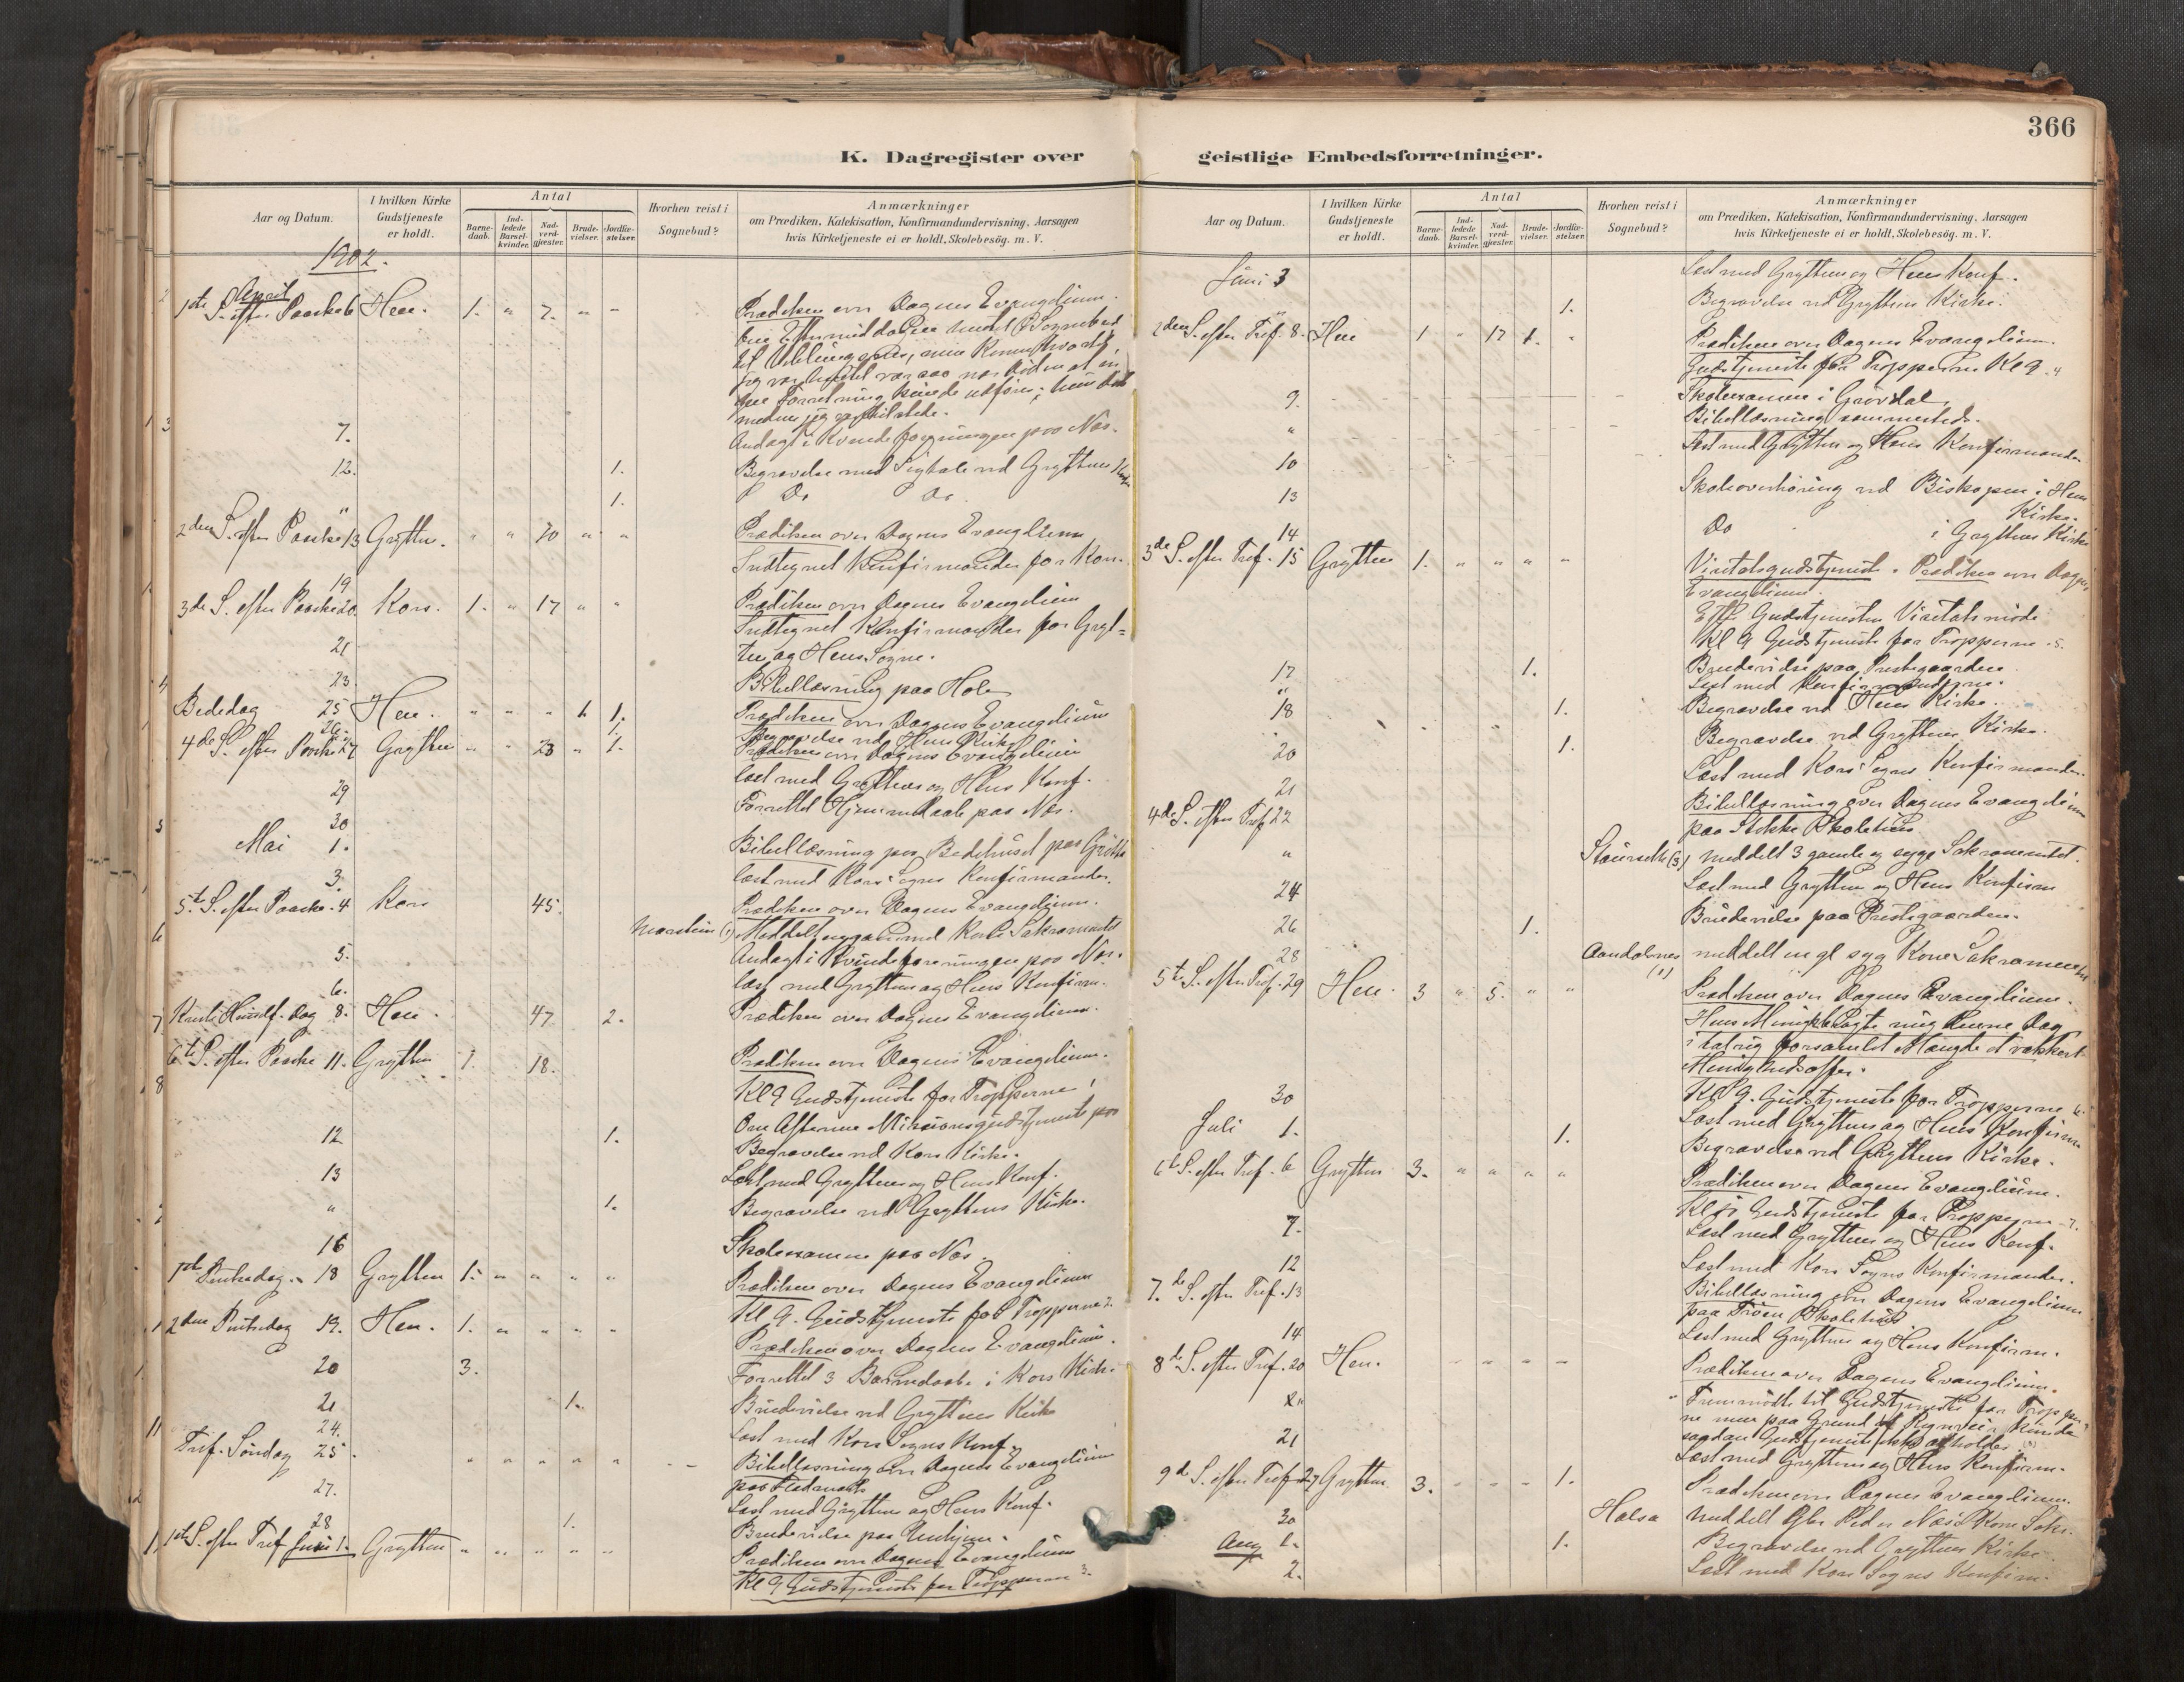 366
K. Dagregister over geistlige Embedsforretninger.
Aar og Datum.
I hvilken Kirke Gudstjeneste er holdt.
Antal
Barne-daab.
Ind-ledede Barsel-kvinder.
Nad-verd-gjæster.
Brude-vielser.
Jordfæ-stelser.
Hvorhen reist i Sognebud?
Anmærkninger
om Prædiken, Katekisation, Konfirmandundervisning, Aarsagen
hvis Kirketjeneste ei er holdt, Skolebesög. m. V.
1902.
April
1ste S. efter Paaske 6 Hen. 1. " 7. " " Prædiken over Dagens Evangelium.
medens jeg var tilstede.
7. Andagt i Kvindeforeningen paa Næs.
12. 1. Begravelse med Ligtale ved Gryttens Kirke
" 1. Do Do.
2den S. efter Paaske 13 Grytten. " " 20 " " Prædiken over Dagens Evangelium
19 Indtegnet Konfirmander for Kors.
3de S. efter Paaske 20. Kors. 1. " 17 " " Prædiken over Dagens Evangelium
21 Indtegnet Konfirmander for Gryt=
ten og Hens Sogne.
23. Bibellæsning paa Hole
Bededag 25 Hen. " " " 1. 1. Prædiken over Dagens Evangelium
26. 1. Begravelse ved Hens Kirke
4de S. efter Paaske 27 Grytten " " 23 " 1. Prædiken over Dagens Evangelium
29 Læst med Gryttens og Hens Konf.
30 Forrettet Hjemmedaab paa Næs.
Mai 1. Bibellæsning paa Bedehuset paa
3. Læst med Kors Sogns Konfirmander.
5te S. efter Paaske 4 Kors 45. Prædiken over Dagens Evangelium.
Marstein (1) Meddelt Kone Sakramentet
5. Andagt i Kvindeforeningen paa Næs.
6. Læst med Gryttens og Hens Konfirm.
Kristi Himlf. Dag 8. Hen. 47 2. Prædiken over Dagens Evangelium.
6te S. efter Paaske 11. Grytten 1. 18. Prædiken over Dagens Evangelium.
Kl 9 Gudstjeneste for Tropperne 1
Om Aftenen Missionsgudstjeneste paa
12 1. Begravelse ved Kors Kirke.
13 Læst med Gryttens og Hens Konf.
" 1. Begravelse ved Gryttens Kirke.
16 Skoleexamen paa Næs.
1ste Pintsedag 18 Grytten 1. " " " " Prædiken over Dagens Evangelium
Kl 9. Gudstjeneste for Tropperne 2.
2den Pintsedag 19. Hen. 1. " " " " Prædiken over Dagens Evangelium.
20 3. Forrettet 3 Barnedaabe i Kors Kirke
21 1. Brudevielse ved Gryttens Kirke
24. Læst med Kors Sogns Konf.
Trif. Søndag 25. " " " " " Bibellæsning over Dagens Evangelium
27. Læst med Gryttens og Hens Konf.
28 1. Brudevielse paa
1ste S. efter Tref Juni 1. Grytten " " " " " Prædiken over Dagens Evangelium
Kl 9 Gudstjeneste for Tropperne 3.
Aar og Datum.
I hvilken Kirke Gudstjeneste er holdt.
Antal
Barne-daab.
Ind-ledede Barsel-kvinder.
Nad-verd-gjæster.
Brude-vielser.
Jordfæ-stelser.
Hvorhen reist i Sognebud?
Anmærkninger
om Prædiken, Katekisation, Konfirmandundervisning, Aarsagen
hvis Kirketjeneste ei er holdt, Skolebesög. m. V.
Juni 3 Læst med Gryttens og Hens Konf.
" 1. Begravelse ved Gryttens Kirke.
2den S. efter Tref. 8. Hen 1 " 17 1. " Prædiken over Dagens Evangelium.
Gudstjeneste for Tropperne Kl 9. 4
9. Skoleexamen i Grøvdal,
" Bibellæsning sammesteds.
10 Læst med Gryttens og Hens Konfirmander
13 Skoleoverhøring ved Biskopen i Hens
Kirke.
14 Do i Gryttens Kirke
3de S. efter Tref. 15 Grytten 1. " " " " Visitatsgudstjeneste. Prædiken over Dagens
Evangelium.
Efter Gudstjenesten Visitatsmøde
Kl 9 Gudstjeneste for Tropperne 5.
17 1. Brudevielse paa Prestegaarden
" Læst med Konfirmanderne.
18 1. Begravelse ved Hens Kirke.
20 1. Begravelse ved Gryttens Kirke.
21 Læst med Kors Sogns Konfirmander.
4de S. efter Tref 22 Bibellæsning over Dagens Evangelium
paa Stokke Skolehus.
" (3) Meddelt 3 gamle og syge Sakramentet.
24 Læst med Gryttens og Hens Konfirm
26 1. Brudevielse paa Prestegaarden.
28 Aandalsnes (1) meddelt en gl syg Kone Sakramentet
5te S. efter Tref. 29 Hen. 3 " 5. " " Prædiken over Dagens Evangelium.
Hens Menighed bragte mig denne Dag
i talrig forsamlet Mængde et vakkert
Menighedsoffer.
Kl 9. Gudstjeneste for Tropperne 6.
30 Læst med Gryttens og Hens Konfirm
Juli 1. 1. Begravelse ved Gryttens Kirke.
6te S. efter Tref. 6 Grytten 3. " " " " Prædiken over Dagens Evangelium.
Gudstjeneste for Tropperne 7.
7. Læst med Gryttens og Hens Konf.
12 Læst med Kors Sogns Konfirmander.
7.de S. efter Tref. 13 Bibellæsning over Dagens Evangelium
paa Skolehus
14 Læst med Gryttens og Hens Konfirm.
8de S. efter Tref. 20 Hen. " " " " Prædiken over Dagens Evangelium.
" Fremmødte til Gudstjeneste for Tropper=
ne men paa Grund af Regnveir kunde
saadan Gudstjeneste ikke afholdes
21 Læst med Gryttens og Hens Konfirm.
9de S. efter Tref 27 Grytten 3. " " " 1. Prædiken over Dagens Evangelium.
30 Halsa Meddelt
Aug 1. 1. Begravelse ved Gryttens Kirke.
2. Læst med Kors Sogns Konfirm.